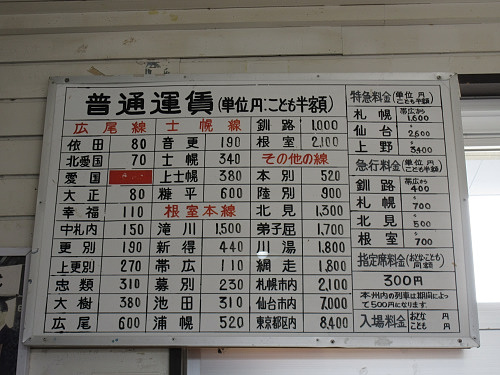 普通運賃(単位円:こども半額)
広尾線
依田 80
北愛国 70
愛国
大正 80
幸福 110
中札内 150
更別 190
上更別 270
忠類 310
大樹 380
広尾 600
士幌線
音更 190
士幌 340
上士幌 380
糠平 600
根室本線
滝川 1,500
新得 440
帯広 110
幕別 230
池田 310
浦幌 520
釧路 1,000
根室 2,100
その他の線
本別 520
陸別 900
北見 1,300
弟子屈 1,700
川湯 1,800
網走 1,800
札幌市内 2,100
仙台市内 7,000
東京都区内 8,400
特急料金(単位 円 こども半額)
札幌 帯広から 1,600
仙台 〃 2,600
上野 〃 3,400
急行料金(単位 円 こども半額)
釧路 帯広から 400
札幌 〃 700
北見 〃 500
根室 〃 700
指定席料金(おとなこども同額)
300円
本州内の列車は期間によっ
て500円になります。
入場料金 おとな 円
こども 円